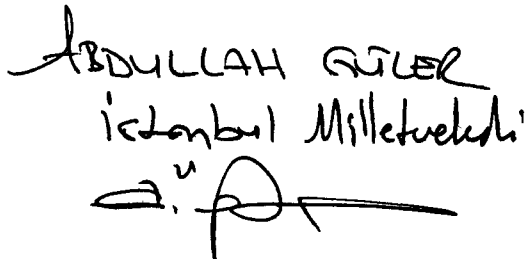 ABDULLAH GÜLER
İstanbul Milletvekili